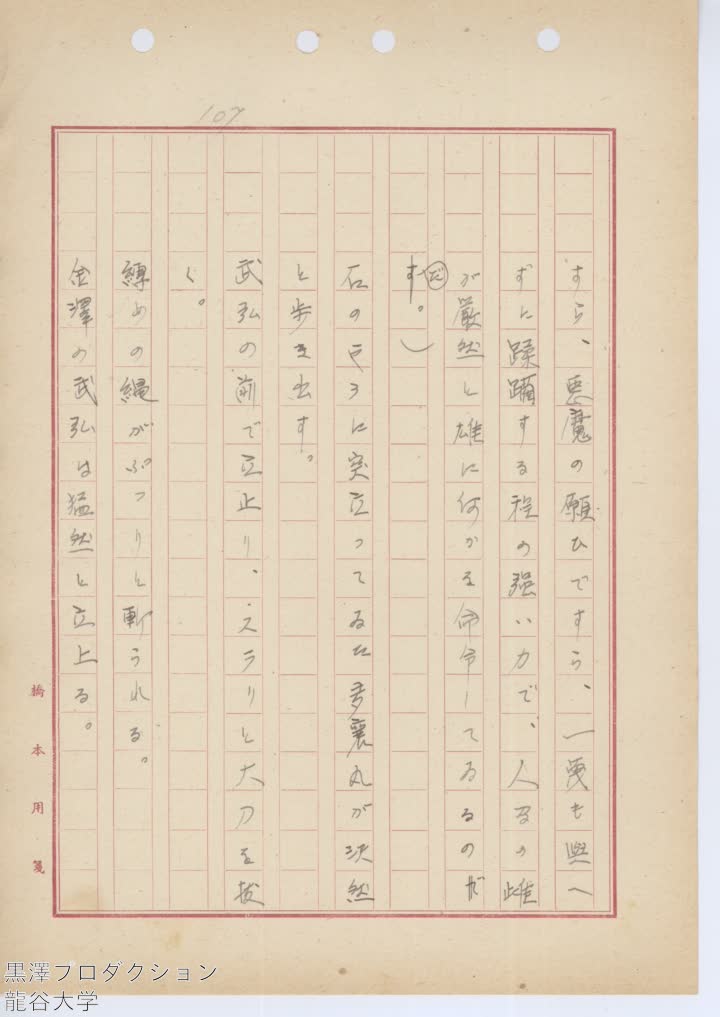 107
すら、悪魔の願ひですら、一曳も與へ
ずに蹂躙する程の強い力で、人るの雌
が厳然と雄に何かを命令してゐるのだ
す。)
だ
石のやうに突立つてゐた多襄丸が決然
と歩き出す。
武弘の前で立止り、スラリと大刀を抜
く。
縛めの縄がぷつりと斬られる。
金澤の武弘は猛然と立上る。
橋本用箋
黒澤プロダクション
龍谷大学